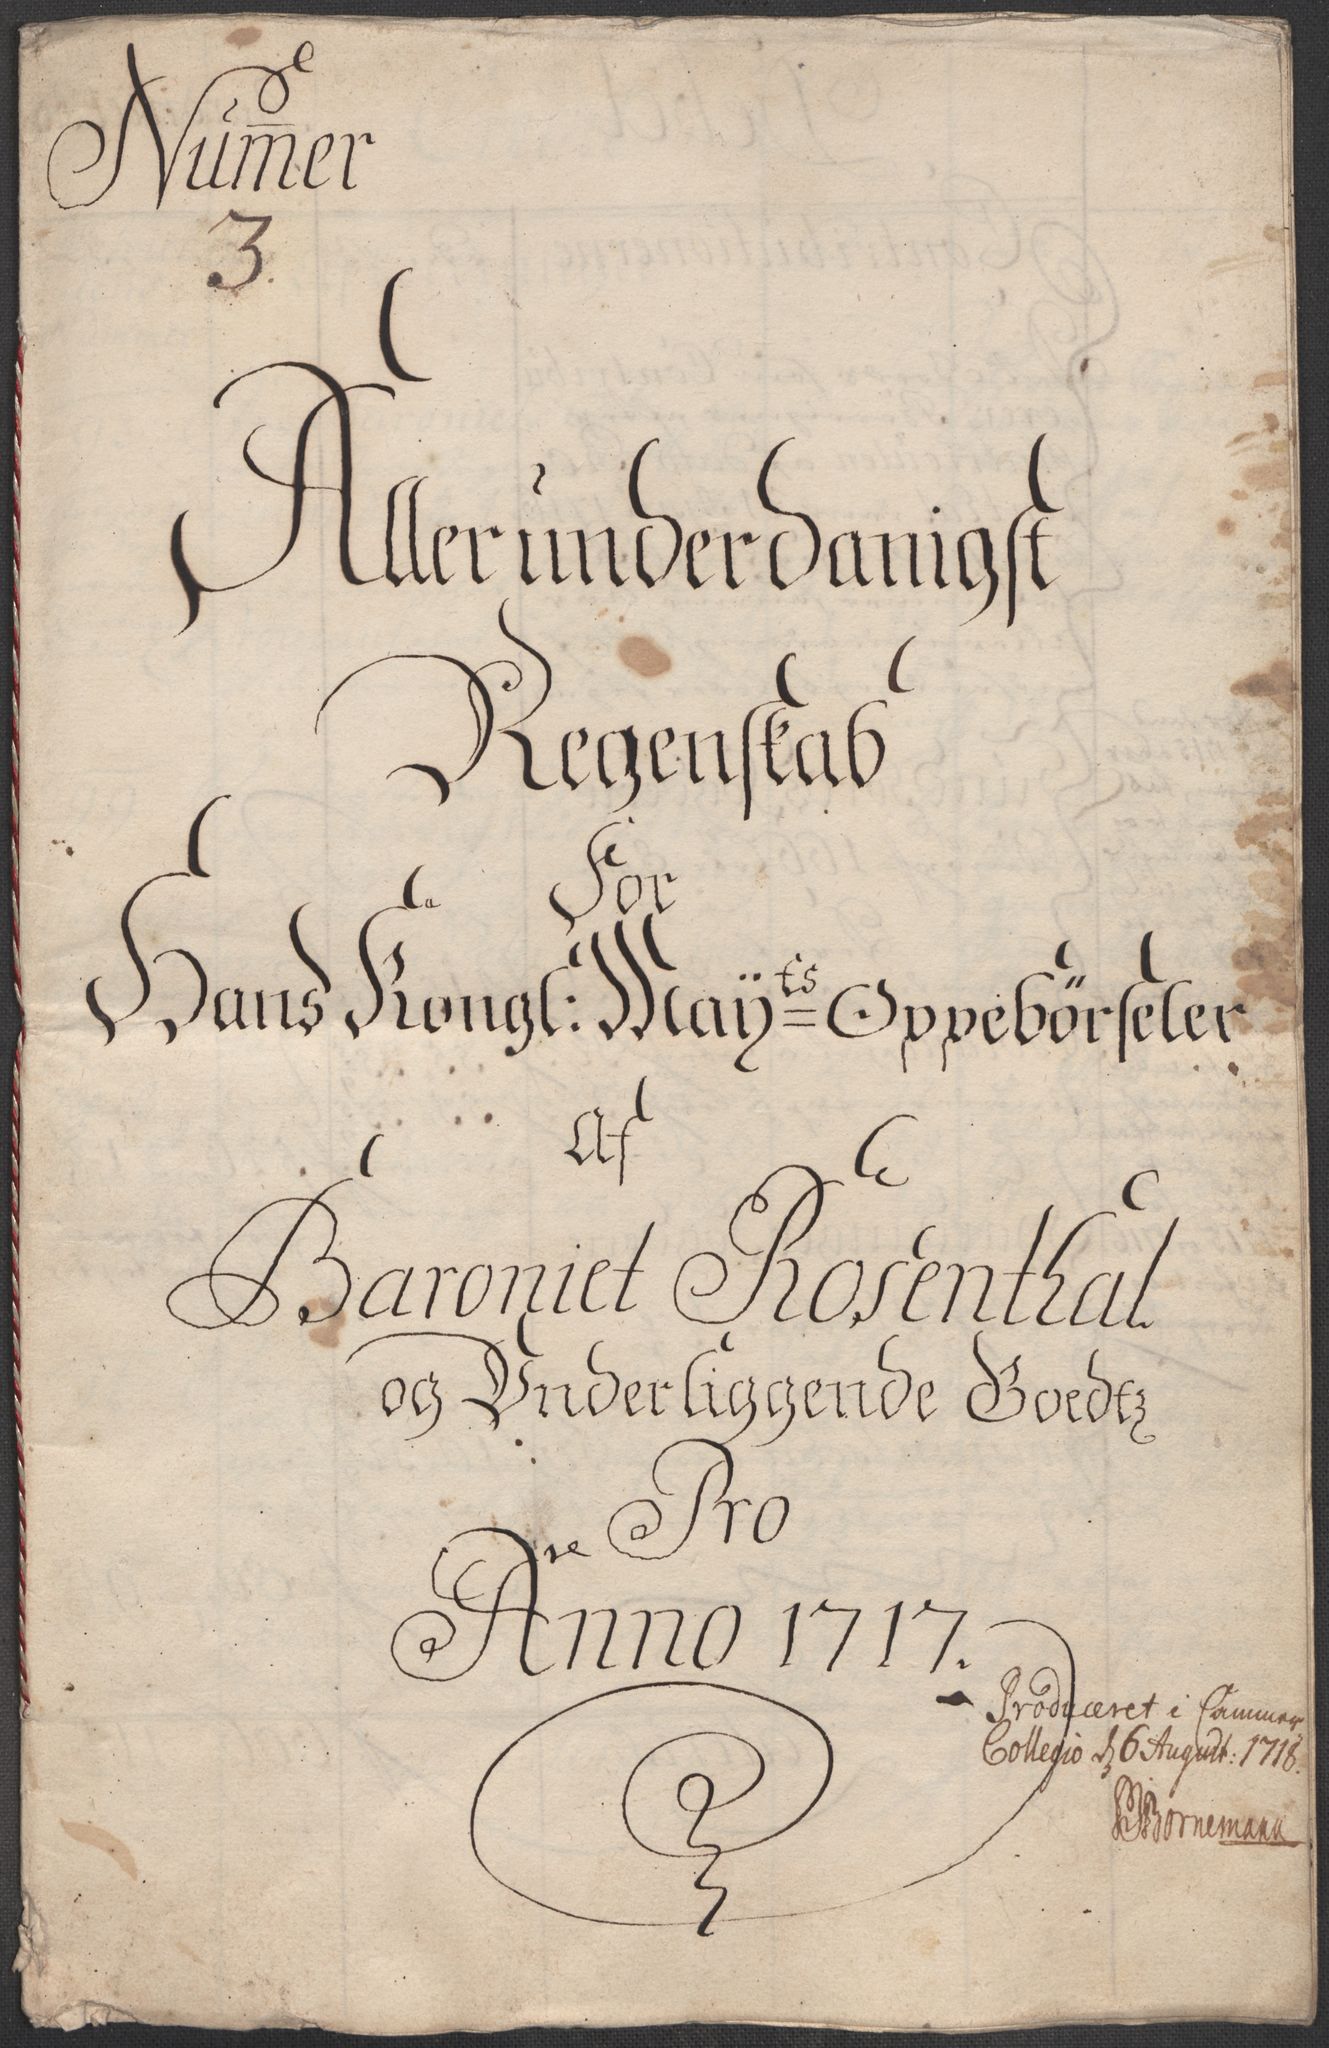 Num̅er
3.
Allerunderdanigst
Regenskab
For
Hans Kongl: Maÿts Oppebörseler
Af
Baroniet Rosenthal
og Underliggende Goedtz
Pro
Anno 1717.
Produceret i Cammer
Collegio d 6 Augustt: 1718.
Bornemann